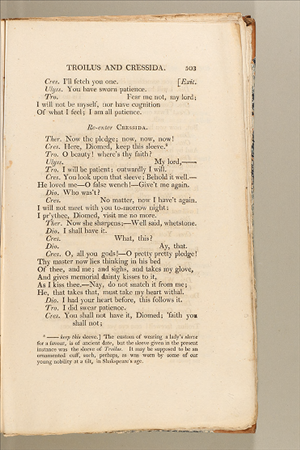 TROILUS AND CRESSIDA. 203
Cres. I'll fetch you one. [Exit.
Ulyss. You have sworn patience.
Tro. Fear me not, my lord;
I will not be myself, nor have cognition
Of what I feel; I am all patience.
Re-enter CRESSIDA.
Ther. Now the pledge; now, now, now!
Cres. Here, Diomed, keep this sleeve.*
Tro. O beauty! where's thy faith?
Ulyss. My lord,——
Tro. I will be patient; outwardly I will.
Cres. You look upon that sleeve; Behold it well.—
He loved me—O false wench!—Give't me again.
Dio. Who was't?
Cres. No matter, now I have't again.
I will not meet with you to-morrow night:
I pr'ythee, Diomed, visit me no more.
Ther. Now she sharpens;—Well said, whetstone.
Dio. I shall have it.
Cres. What, this?
Dio. Ay, that.
Cres. O, all you gods!—O pretty pretty pledge!
Thy master now lies thinking in his bed
Of thee, and me; and sighs, and takes my glove,
And gives memorial dainty kisses to it,
As I kiss thee.—Nay, do not snatch it from me;
He, that takes that, must take my heart withal.
Dio. I had your heart before, this follows it.
Tro. I did swear patience.
Cres. You shall not have it, Diomed; 'faith you
shall not;
* —— keep this sleeve.] The custom of wearing a lady's sleeve
for a favour, is of ancient date, but the sleeve given in the present
instance was the sleeve of Troilus. It may be supposed to be an
ornamented cuff, such, perhaps, as was worn by some of our
young nobility at a tilt, in Shakspeare's age.